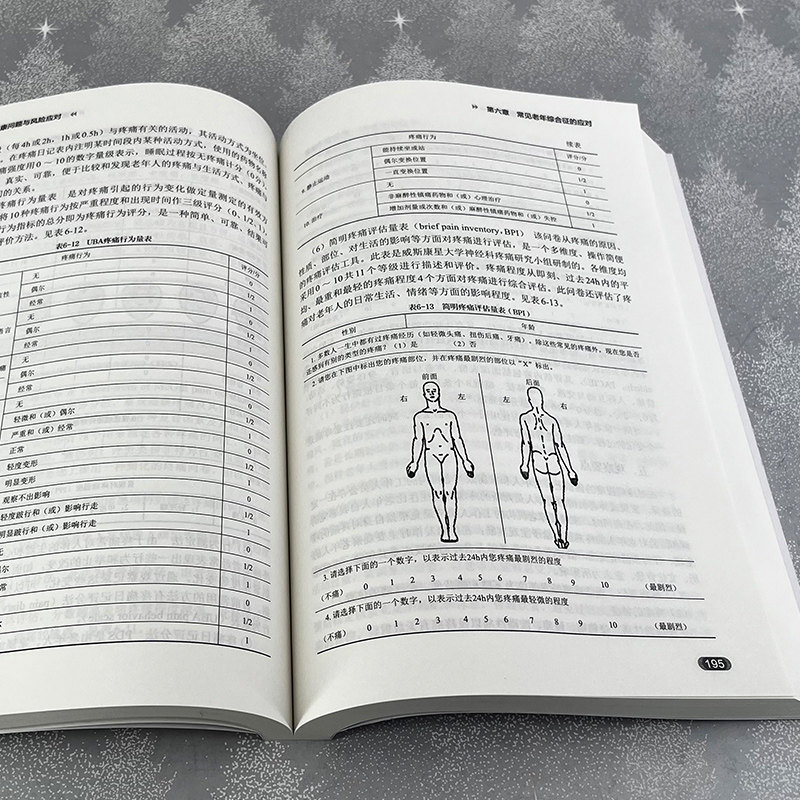 康问题与风险应对
（每4h或2h，1h或0.5h）与疼痛有关的活动，其活动方式为坐位、
在疼痛日记表内注明某时间段内某种活动方式，使用的药物名称
痛强度用0～10的数字量级表示，睡眠过程按无疼痛计分（0分）。
真实、可靠，便于比较和发现老年人的疼痛与生活方式、疼痛与
的关系。
疼痛行为量表 是对疼痛引起的行为变化做定量测定的有效方
将10种疼痛行为按严重程度和出现时间作三级评分（0、1/2、1），
行为指标的总分即为疼痛行为评分，是一种简单、可靠、结果可
评价方法。见表6-12。
表6-12 UBA疼痛行为量表
疼痛行为 评分/分
无 0
偶尔 1/2
经常 1
无 0
偶尔 1/2
经常 1
无 0
偶尔 1/2
经常 1
无 0
轻微和（或）偶尔 1/2
严重和（或）经常 1
正常 0
轻度变形 1/2
明显变形 1
观察不出影响 0
轻度跛行和（或）影响行走 1/2
明显跛行和（或）影响行走 1
无 0
偶尔 1/2
经常 1
0
1/2
1
第六章 常见老年综合征的应对
续表
疼痛行为 评分/分
9.静止运动 能持续坐或站 0
偶尔变换位置 1/2
一直变换位置 1
10.治疗 无 0
非麻醉性镇痛药物和（或）心理治疗 1/2
增加剂量或次数和（或）麻醉性镇痛药物和（或）失控 1
（6）简明疼痛评估量表（brief pain inventory，BPI） 该问卷从疼痛的原因、
性质、部位、对生活的影响等方面对疼痛进行评估，是一个多维度、操作简便
的疼痛评估工具。此表是威斯康星大学神经科疼痛研究小组研制的。各维度均
采用0～10共11个等级进行描述和评价。疼痛程度从即刻、过去24h内的平
均、最重和最轻的疼痛程度4个方面对疼痛进行综合评估。此问卷还评估了疼
痛对老年人的日常生活、情绪等方面的影响程度。见表6-13。
表6-13 简明疼痛评估量表（BPI）
性别 年龄
1. 多数人一生中都有过疼痛经历（如轻微头痛、扭伤后痛、牙痛），除这些常见的疼痛外，现在您是否
还感到有别的类型的疼痛？（1）是 （2）否
2. 请您在下图中标出您的疼痛部位，并在疼痛最剧烈的部位以“X”标出。
前面 后面
右 左 左 右
3. 请选择下面的一个数字，以表示过去24h内您疼痛最剧烈的程度
（不痛） 0 1 2 3 4 5 6 7 8 9 10 （最剧烈）
4. 请选择下面的一个数字，以表示过去24h内您疼痛最轻微的程度
（不痛） 0 1 2 3 4 5 6 7 8 9 10 （最剧烈）
195